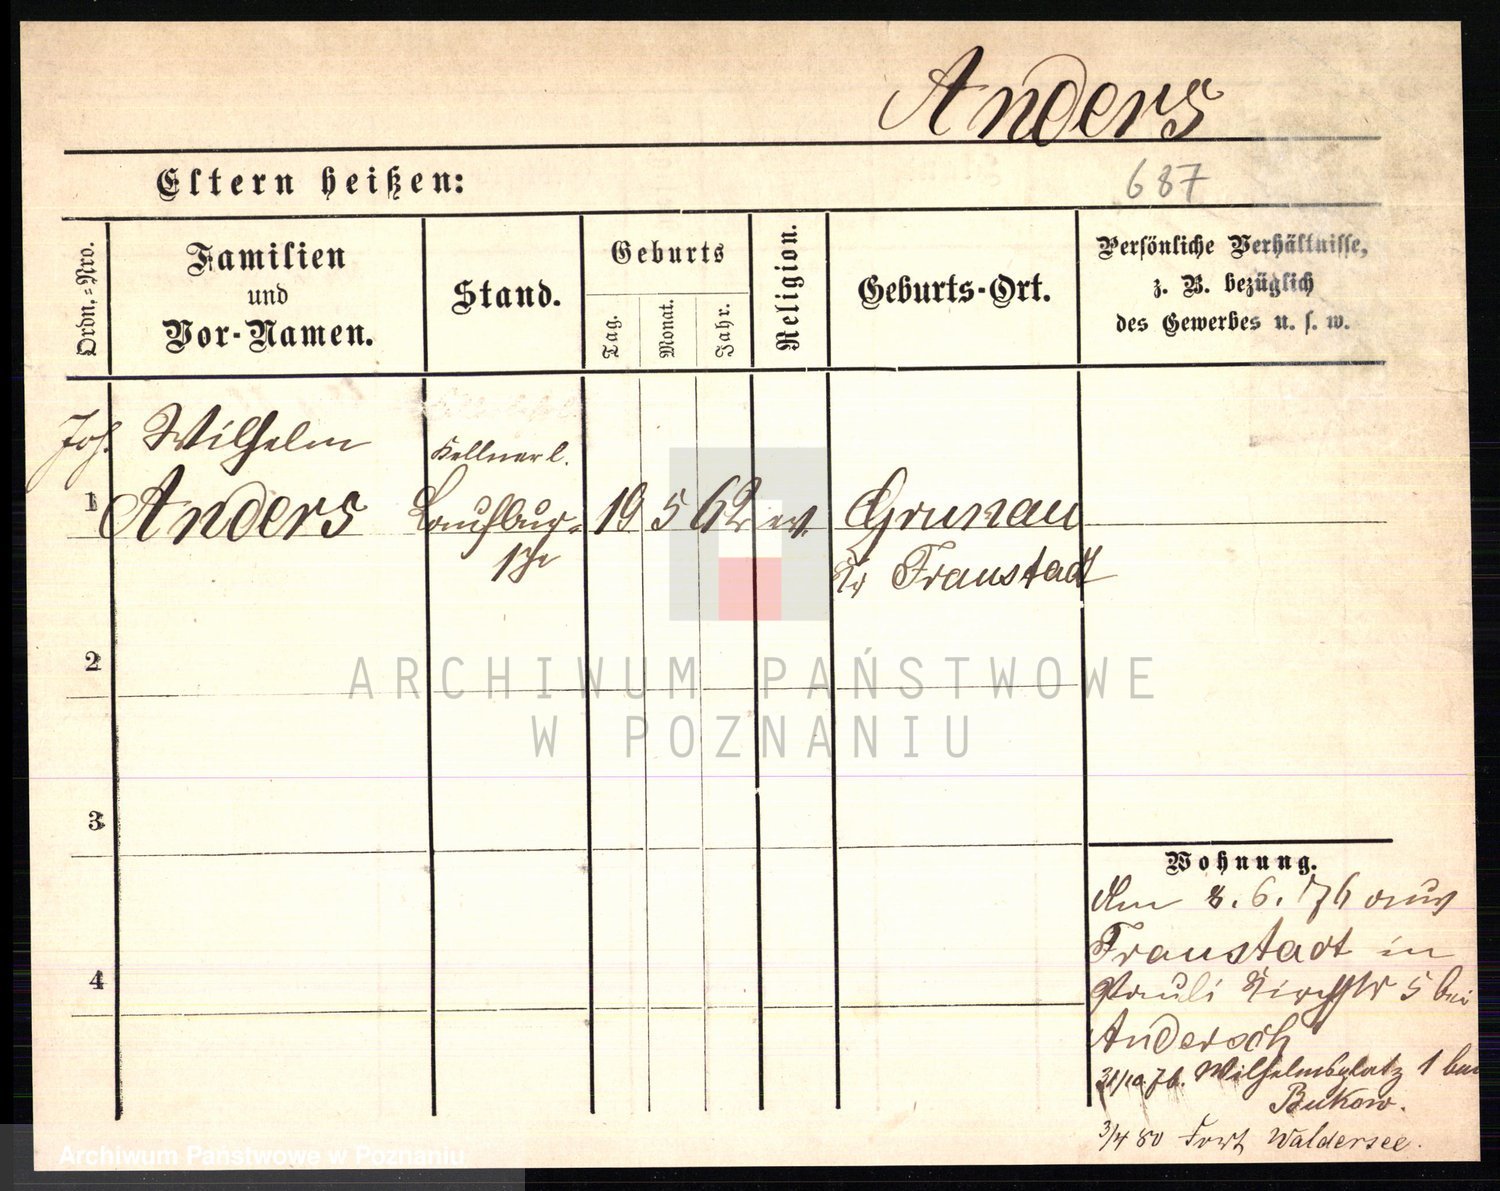 Anders
Eltern heißen:
687
Ordn.-Nro.
Familien
und
Vor-Namen.
Stand.
Geburts
Tag.
Monat.
Jahr.
Religion.
Geburts-Ort.
Persönliche Verhältnisse,
z. B. bezüglich
des Gewerbes u. s. w.
Joh. Wilhelm
Kellnerl.
1 Anders Laufbur- 19 5 62 ev. Grunau
sche Kr Fraustadt
ARCHIWUM PAŃSTWOWE
W POZNANIU
2
3
4
Wohnung.
Am 8.6.76 aus
Fraustadt in
Pauli Kirchstr 5 bei
Andersch
31/10 76. Wilhelmsplatz 1 bei
Bukow.
3/4 80 Fort Waldersee.
Archiwum Państwowe w Poznaniu